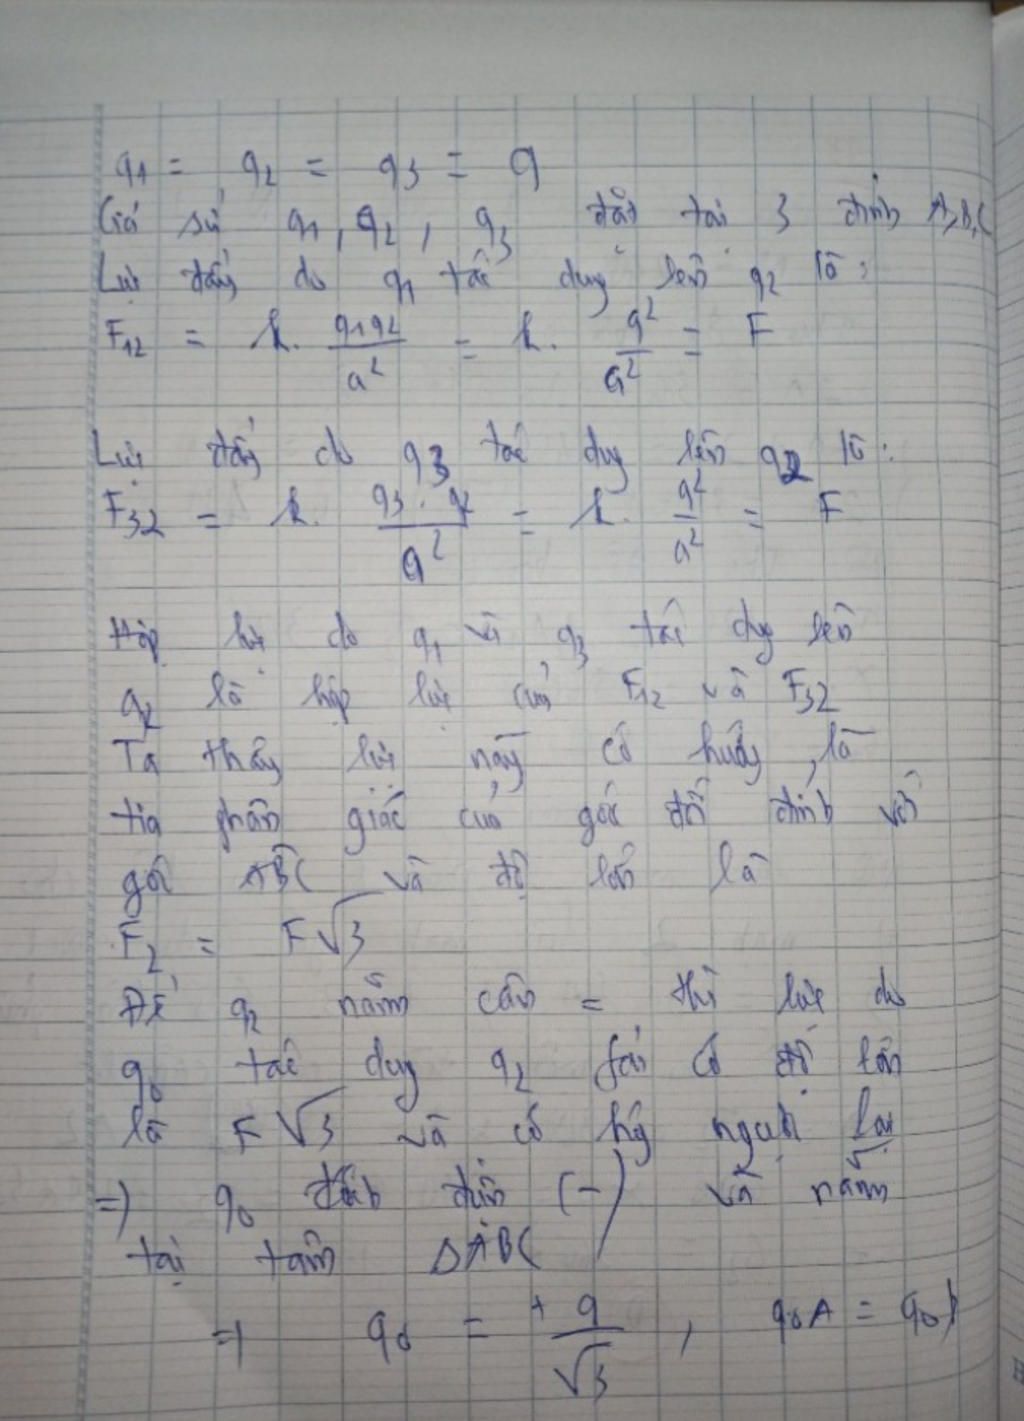 q1 = q2 = q3 = q
Giả sử q1, q2, q3 đặt tại 3 đỉnh A,B,C
Lực đẩy do q1 tác dụng lên q2 là:
F12 = k. q1q2/a² = k. q²/a² = F
Lực đẩy do q3 tác dụng lên q2 là:
F32 = k. q3.q2/a² = k. q²/a² = F
Hợp lực do q1 và q3 tác dụng lên
q2 là hợp lực của F12 và F32
Ta thấy lực này có hướng là
tia phân giác của góc đối đỉnh với
góc ABC và độ lớn là
F2 = F√3
Để q2 nằm cân = thì lực do
q0 tác dụng q2 fải có độ lớn
là F√3 và có hg ngược lại
=> q0 (-) và nằm
tại tâm ΔABC
=> q0 = + q/√3 , q0A =